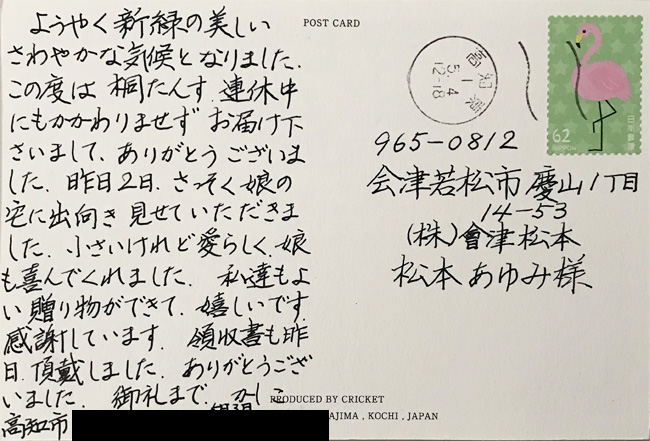 ようやく新緑の美しい
さわやかな気候となりました.
この度は 桐たんす. 連休中
にもかかわりませず お届け下
さいまして、ありがとうございま
した. 昨日2日. さっそく娘の
宅に出向き 見せていただきま
した. 小さいけれど愛らしく、娘
も喜んでくれました. 私達もよ
い贈り物ができて、嬉しいです.
感謝しています. 領収書も昨
日. 頂戴しました. ありがとうござ
いました. 御礼まで. かしこ
高知市
POST CARD
5 4
12-18
62
日本郵便
NIPPON
965-0812
会津若松市 慶山1丁目
14-53
(株)會津松本
松本 あゆみ様
PRODUCED BY CRICKET
AJIMA, KOCHI, JAPAN